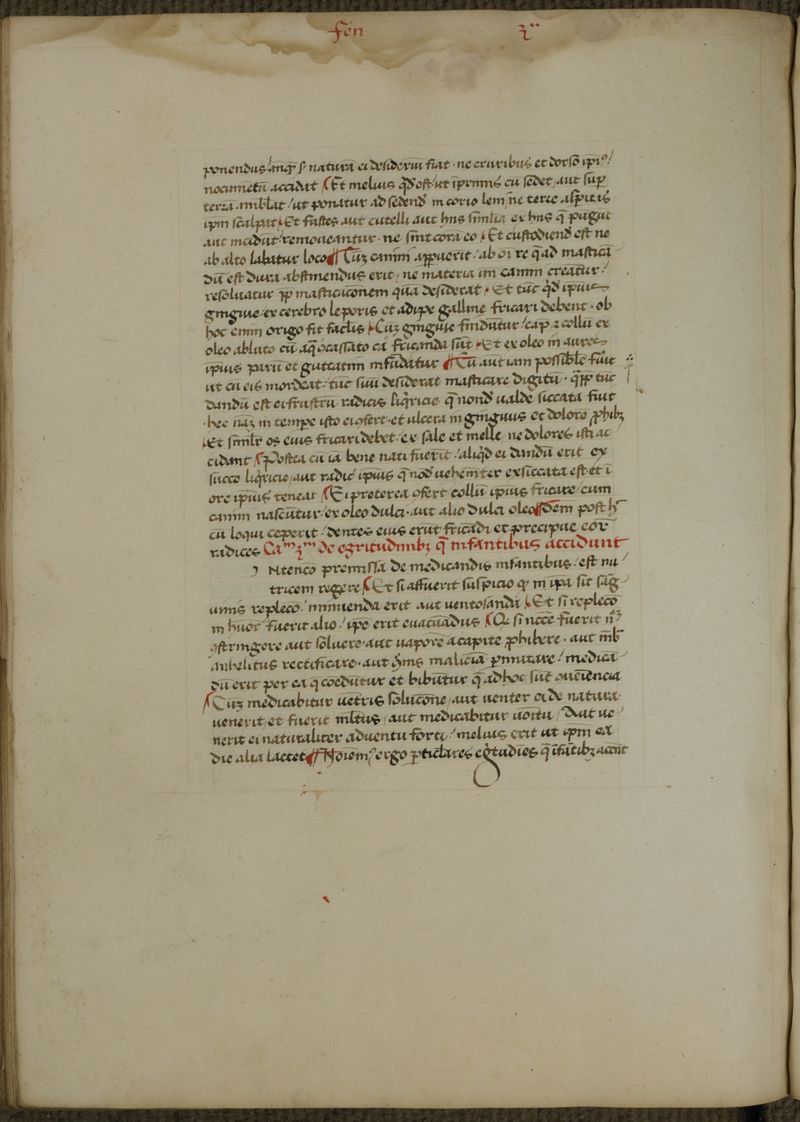 fen 3ª
ponendus· antequam si natura ei desideriū fiat · ne cruribus et dorso ipiꝰ
nocumētū accidat Et melius qd̄ est ut īprimis cū sedet aut sup̄
terrā amblat / ut ponatur ad sedend̄ in corio leni ne terre asp̄itas
ipm scalpat Et fustes aut cutelli aut hiis similia ex hiis q̄ pugūt
aut incidūt remoueantur · ne sint corā eo Et custodiend̄ est ne
ab alto labatur loco Cuz canini apparuerīt / ab oī re q̄ ad masticā
dū est dura abstinendus erit / ne materia in caninī creatur /
resoluatur pp̄ masticaciōnem quā desiderat · Et tūc qd̄ ipius
gingiue ex cerebro leporis et adipe galline fricari debent · ob
hoc enim origo fit facilis Cuz gingiue findūtur / cap̄ ⁊ collū ex
oleo abluto cū aq̄ ꝯcassato cā fricanda sūt Et ex oleo in aures
ipius parū et guttatim infūdatur Cū aut iam possibile fuīt
ut cū eis mordeat / tūc suū desiderat masticare digitū · q̄pp̄ tūc
dandū est ei frustrū radicis liq̄ricie q̄ nond̄ ualde siccata fuīt
· hec naz in tempe isto ei ꝯfert · et ulcera in gingiuis et dolorē ꝓhibꝫ
Et similr̄ os eius fricari debet / ex sale et melle ne dolores isti ac
cidant Postea cū iā bene nati fuerīt / aliqd̄ ei dandū erit ex
succo liq̄ricie / aut radic̄ ipius q̄ nōd̄ uehemēter exsiccata est et ī
ore ipius teneat Ei preterea ꝯfert collū ipius fricare cum
canini nascūtur / ex oleo dulci · aut alio dulci oleo Idem post h̄
cū loqui ceperit / dentes eius erūt fricādi et precipue eoꝝ
radices Caᵐ 3ᵐ de egritudinibꝫ q̄ infantibus accidunt
Ntencō premissa de medicandis infantibus / est nu
tricem regere Et si affuerit suspicio qꝫ in ipa sit sāg
uinis replecō / minuenda erit aut uentosanda Et si replecō
in humore fuerit alio / ipe erit euacuādus Qꝫ si n̄cce fuerit nā
ꝯstringere aut soluere · aut uapore a capite ꝓhibere · aut mēb̄
anhelitus rectificare · aut ꝯ̄nis maliciā p̄mutare / medicā
dū erit per ea q̄ coedūtur et bibūtur q̄ ad hoc sūt ꝯueiencia
Cuz medicabitur uētris solucōne / aut uenter ei de natura
uenerit / et fuerit mltus / aut medicabitur uomitu / Aut ue
nerit ei naturaliter aduentu forti / melius erit ut ipm ea
die alia lactet Noiem ergo p̄ticlares egͥtudies q̄ īfātibꝫ accnt